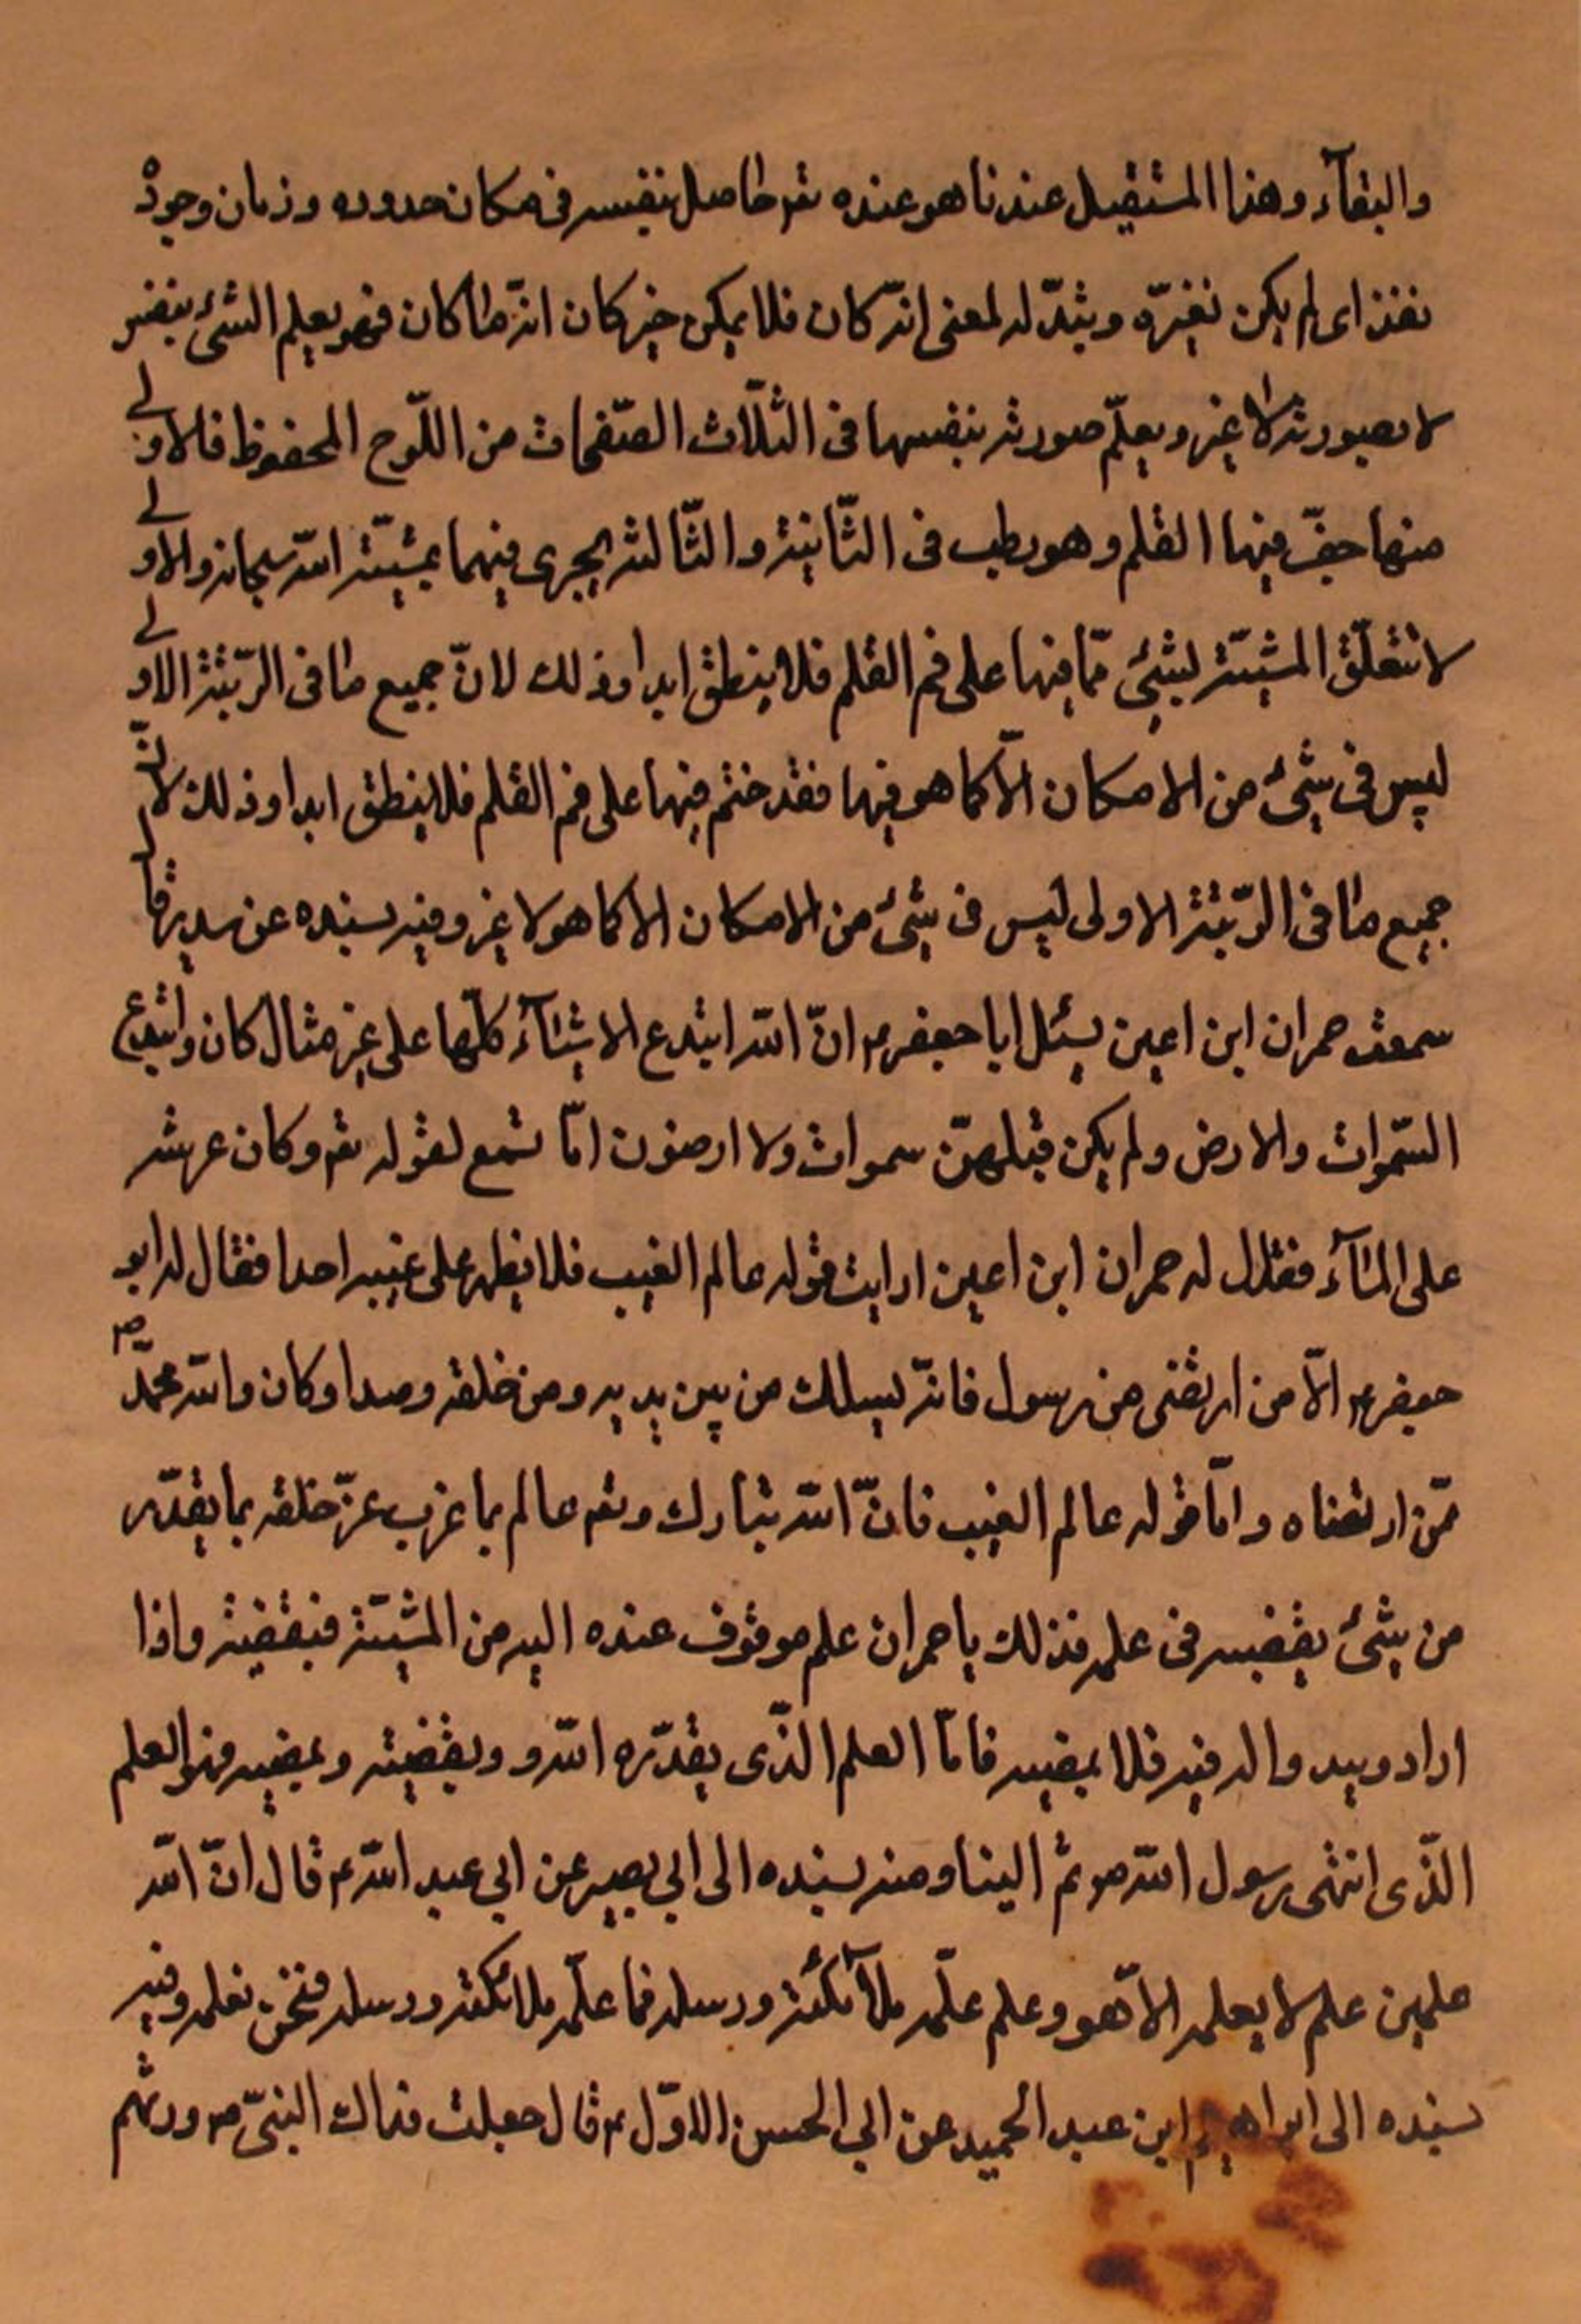 والبقآء وهذا المستقبل عندنا هو عنده تع حاصل بنفسه فى مكان حدوده وزمان وجوده
نفذ اى لم يكن نغيره ويثدّ له لمعنى انّه كان فلا يمكن حين كان انّه ما كان فهو يعلم الشئ بنفسه
لا بصورته لا غير ويعلّم صورته بنفسها فى الثلّاث الصّفحات من اللّوح المحفوظ فالاولى
منها جفّ فيها القلم وهو رطب فى الثّانية والثّالثه يجرى فيهما بمشيّة الله سبحانه والاولى
لا تتعلّق المشيّة لشئ ممّا فيها على فم القلم فلا ينطق ابدا وذلك لانّ جميع ما فى الرّتبة الاولى
ليس فى شئ من الامكان الّا كما هو فيها فقد ختم فيها على فم القلم فلا ينطق ابدا وذلك لانّ
جميع ما فى الرّتبة الاولى ليس فى شئ من الامكان الا كما هو لا غير وفيه بسنده عن سدير قال
سمعت حمران ابن اعين يسئل ابا جعفر ع انّ الله ابتدع الاشيآء كلّها على غير مثال كان وابتدع
السّموات والارض ولم يكن قبلهنّ سموات ولا ارضون امّا تسمع لقوله تع وكان عرشه
على المآء فقال له حمران ابن اعين ارايت قوله عالم الغيب فلا يظهر على غيبه احدا فقال له ابو
جعفر ع الّا من ارتضى من رسول فانّه يسلك من بين يديه ومن خلفه رصدا وكان والله محمّد ص
ممّن ارتضاه وامّا قوله عالم الغيب فانّ الله تبارك وتع عالم بما غرب عزّ خلقه بما يقدّر
من شئ يقضيه فى علمه فذلك يا حمران علم موقوف عنده اليه من المشيّة فيقضيه واذا
اراد ويبد واله فيه فلا يمضيه فامّا العلم الذّى يقدّره الله و ويقضيه ويمضيه فهو العلم
الذّى انتهى رسول الله ص ثم الينا ومنه بسنده الى ابى بصير عن ابى عبد الله ع قال انّ الله
علمين علم لا يعلمه الّا هو وعلم علّمه ملآئكته ورسله فما علّمه ملائكته ورسله فنحن نعلمه وفيه
بسنده الى ابراهيم ابن عبد الحميد عن ابى الحسن الاوّل ع قال جعلت فداك النبىّ ص ورثهم